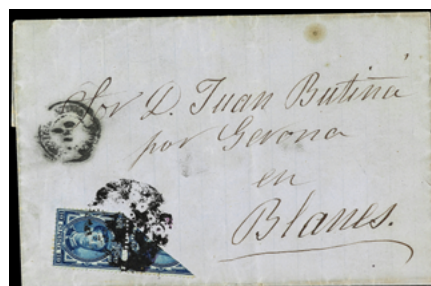 Sor D. Juan Butiña
por Gerona
en
Blanes.